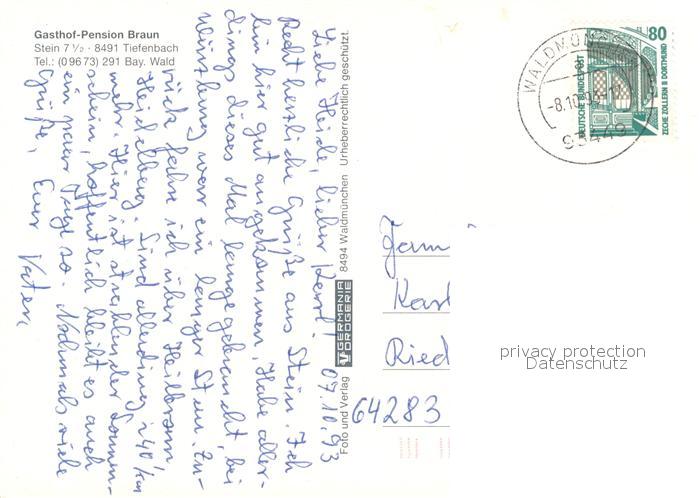 Gasthof-Pension Braun
Stein 7 ½ · 8491 Tiefenbach
Tel.: (0 96 73) 291 Bay. Wald
07.10.93
Liebe Heide, lieber Karl!
Recht herzliche Grüße aus Stein. Ich
bin hier gut angekommen, habe aller-
dings dieses Mal lange gebraucht, bei
Würzburg war ein langer Stau. Zu-
rück fahre ich über Heilbronn
Heidelberg. Sind allerdings 40 km
mehr. Hier ist strahlender Sonnen-
schein, hoffentlich bleibt es auch
ein paar Tage so. Nochmals viele
Grüße, Euer Vater.
Foto und Verlag GERMANIA DROGERIE 8494 Waldmünchen Urheberrechtlich geschützt.
80
DEUTSCHE BUNDESPOST
ZECHE ZOLLERN II DORTMUND
-8.10.93
93449
Karl
Ried
64283
privacy protection
Datenschutz